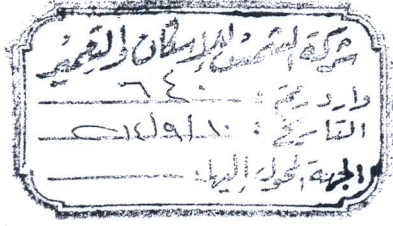 شركة الشمس للإسكان والتعمير
وارد رقم : ٦٤٠
التاريخ : ٢٠١٤/٩/١٠
الجهة المحول إليها :